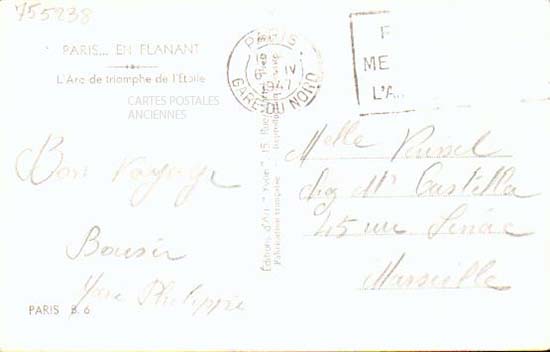 755238
PARIS... EN FLANANT
L'Arc de triomphe de l'Étoile
CARTES POSTALES
ANCIENNES
Bon voyage
PARIS B. 6
PARIS
IV
1947
GARE DU NORD
Editions d'Art "Yvon", 15, Rue
Fabrication française - Reproduction
ME
L'A
Melle
chez Mr Castella
45 rue Sénac
Marseille